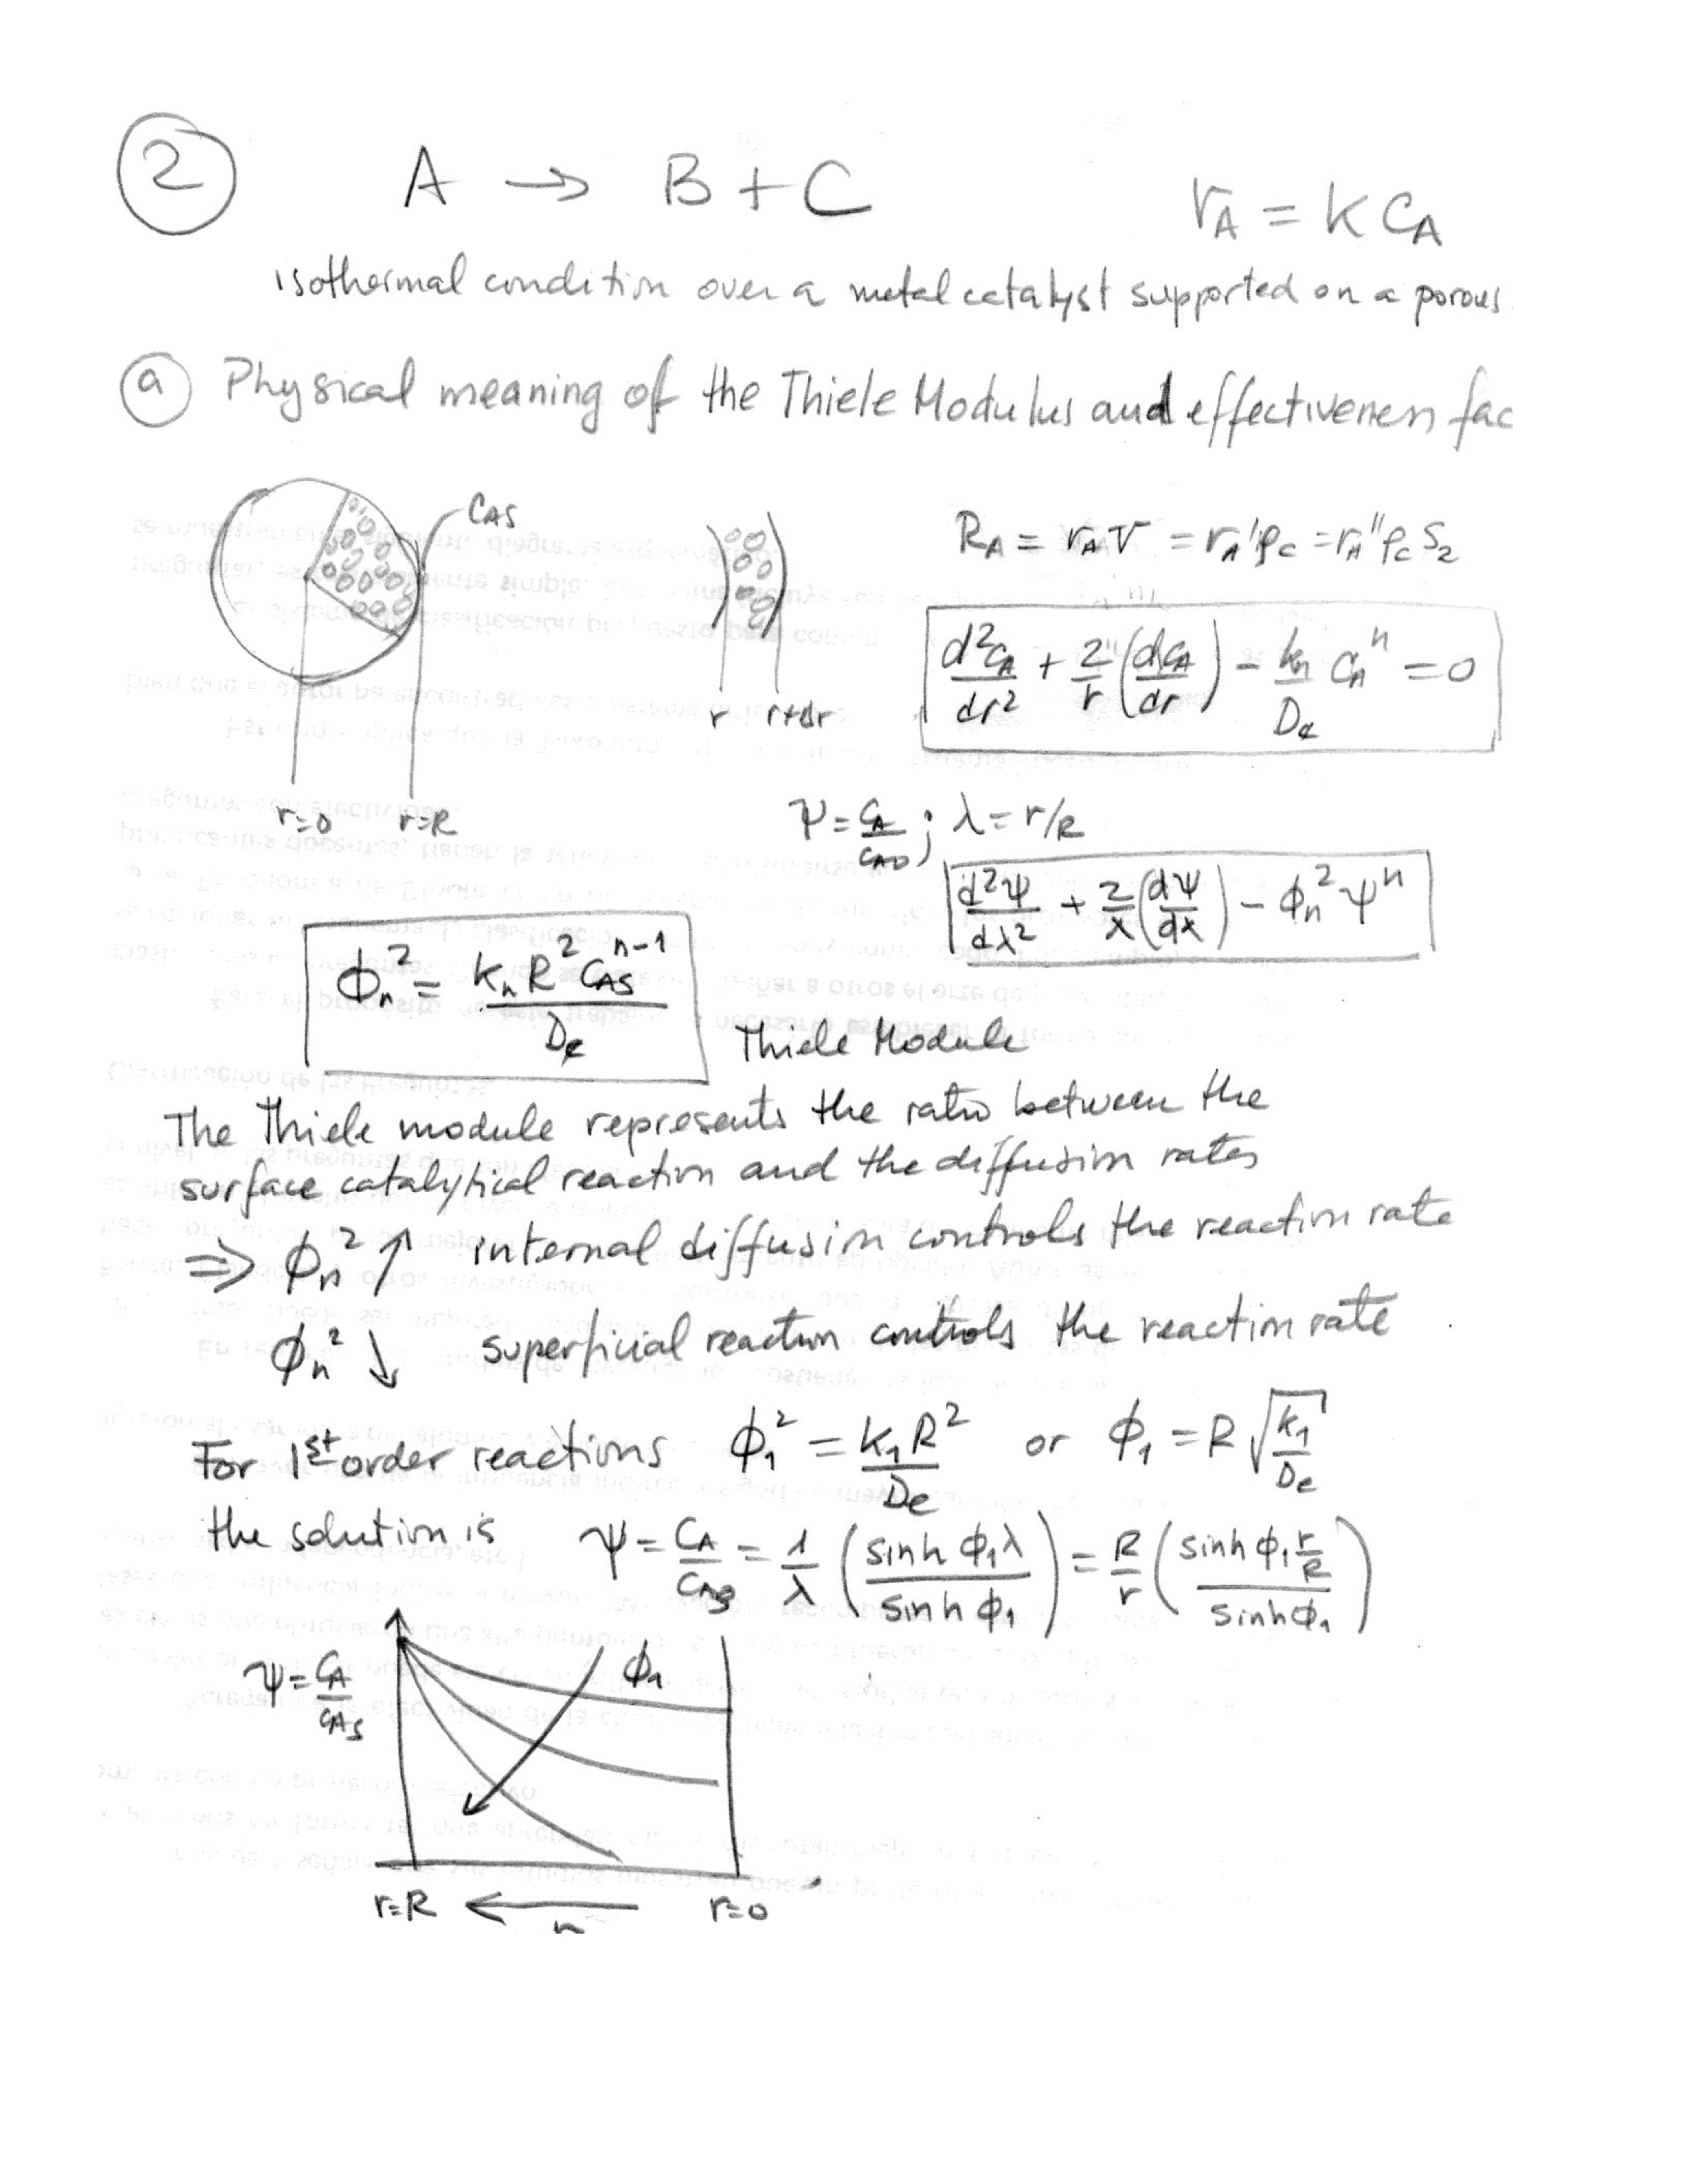 2 A → B + C r_A = K C_A
isothermal condition over a metal catalyst supported on a porous
a Physical meaning of the Thiele Modulus and effectiveness fac
C_AS
R_A = r_A V = r_A' ρ_C = r_A'' ρ_C S_2
d²C_A/dr² + 2/r (dC_A/dr) - k_n/D_e C_A^n = 0
r r+dr
r=0 r=R
ψ = C_A/C_A0 ; λ = r/R
d²ψ/dλ² + 2/λ (dψ/dλ) - ϕ_n² ψ^n
ϕ_n² = k_n R² C_AS^(n-1) / D_e
Thiele Module
The Thiele module represents the ratio between the
surface catalytical reaction and the diffusion rates
⇒ ϕ_n² ↑ internal diffusion controls the reaction rate
ϕ_n² ↓ superficial reaction controls the reaction rate
For 1st order reactions ϕ_1² = k_1 R² / D_e or ϕ_1 = R √(k_1/D_e)
the solution is ψ = C_A/C_AS = 1/λ (sinh ϕ_1 λ / sinh ϕ_1) = R/r (sinh ϕ_1 r/R / sinh ϕ_1)
ψ = C_A/C_AS
ϕ_1
r=R ← r=0